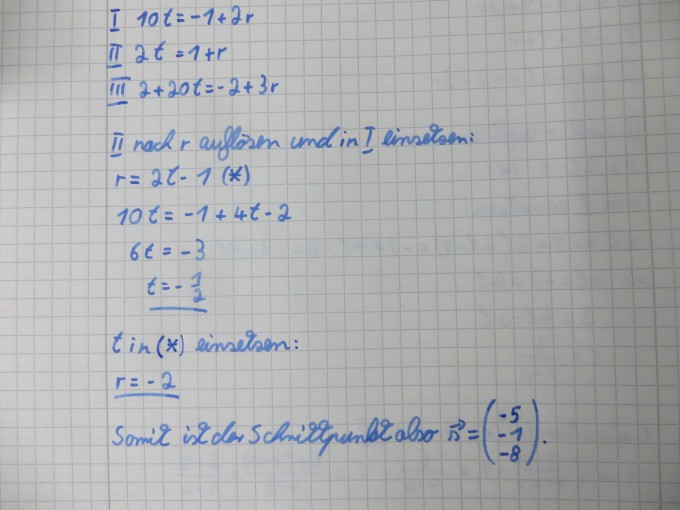 I 10t = -1 + 2r
II 2t = 1 + r
III 2 + 20t = -2 + 3r
II nach r auflösen und in I einsetzen:
r = 2t - 1 (*)
10t = -1 + 4t - 2
6t = -3
t = - 1/2
t in (*) einsetzen:
r = -2
Somit ist der Schnittpunkt also s⃗ = (-5 -1 -8).